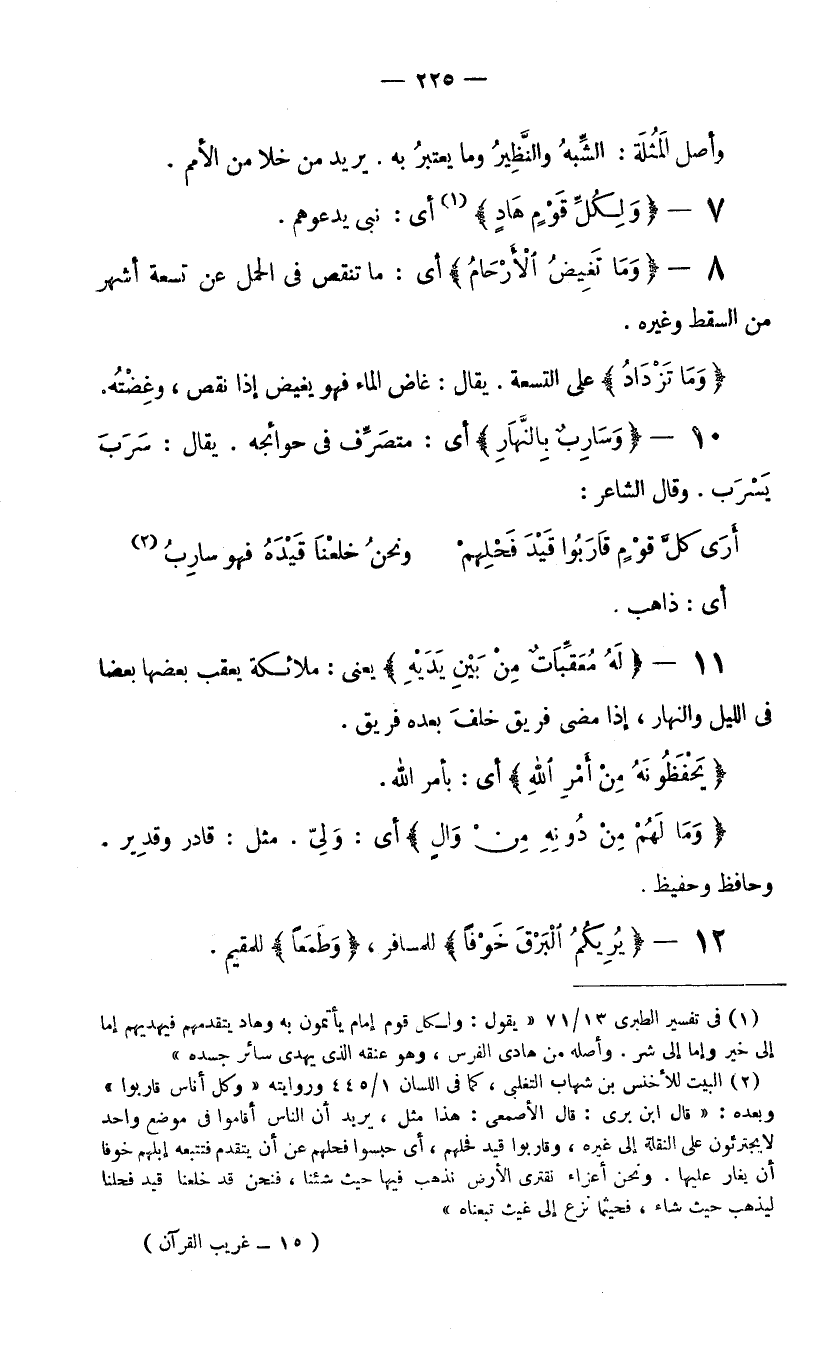 — ٢٢٥ —
وأصل المَثُلَة : الشِّبهُ والنَّظِيرُ وما يعتبرُ به . يريد من خلا من الأمم .
٧ — ﴿ وَلِكُلِّ قَوْمٍ هَادٍ ﴾ (١) أى : نبى يدعوهم .
٨ — ﴿ وَمَا تَغِيضُ ٱلْأَرْحَامُ ﴾ أى : ما تنقص فى الحمل عن تسعة أشهر
من السقط وغيره .
﴿ وَمَا تَزْدَادُ ﴾ على التسعة . يقال : غاض الماء فهو يغيض إذا نقص ، وغِضْتُه.
١٠ — ﴿ وَسَارِبٌ بِالنَّهَارِ ﴾ أى : متصَرِّف فى حوائجه . يقال : سَرَبَ
يَسْرَب . وقال الشاعر :
أَرَى كلَّ قوْمٍ قَارَبُوا قَيْدَ فَحْلِهِمْ ونحنُ خلعْنَا قَيْدَهُ فهو سارِبُ (٢)
أى : ذاهب .
١١ — ﴿ لَهُ مُعَقِّبَاتٌ مِنْ بَيْنِ يَدَيْهِ ﴾ يعنى : ملائكة يعقب بعضها بعضا
فى الليل والنهار ، إذا مضى فريق خلفَ بعده فريق .
﴿ يَحْفَظُونَهُ مِنْ أَمْرِ ٱللهِ ﴾ أى : بأمر الله .
﴿ وَمَا لَهُمْ مِنْ دُونِهِ مِنْ وَالٍ ﴾ أى : وَلِىّ . مثل : قادر وقدير .
وحافظ وحفيظ .
١٢ — ﴿ يُرِيكُمُ ٱلْبَرْقَ خَوْفاً ﴾ للمسافر ، ﴿ وَطَمَعاً ﴾ للمقيم .
(١) فى تفسير الطبرى ٧١/١٣ « يقول : ولكل قوم إمام يأتمون به وهاد يتقدمهم فيهديهم إما
إلى خير وإما إلى شر . وأصله من هادى الفرس ، وهو عنقه الذى يهدى سائر جسده »
(٢) البيت للأخنس بن شهاب التغلبى ، كما فى اللسان ٤٤٥/١ وروايته « وكل أناس قاربوا »
وبعده : « قال ابن برى : قال الأصمعى : هذا مثل ، يريد أن الناس أقاموا فى موضع واحد
لايجترئون على النقلة إلى غيره ، وقاربوا قيد فحلهم ، أى حبسوا فحلهم عن أن يتقدم فتتبعه إبلهم خوفا
أن يغار عليها . ونحن أعزاء نقترى الأرض نذهب فيها حيث شئنا ، فنحن قد خلعنا قيد فحلنا
ليذهب حيث شاء ، فحيثما نزع إلى غيث تبعناه »
( ١٥ — غريب القرآن )